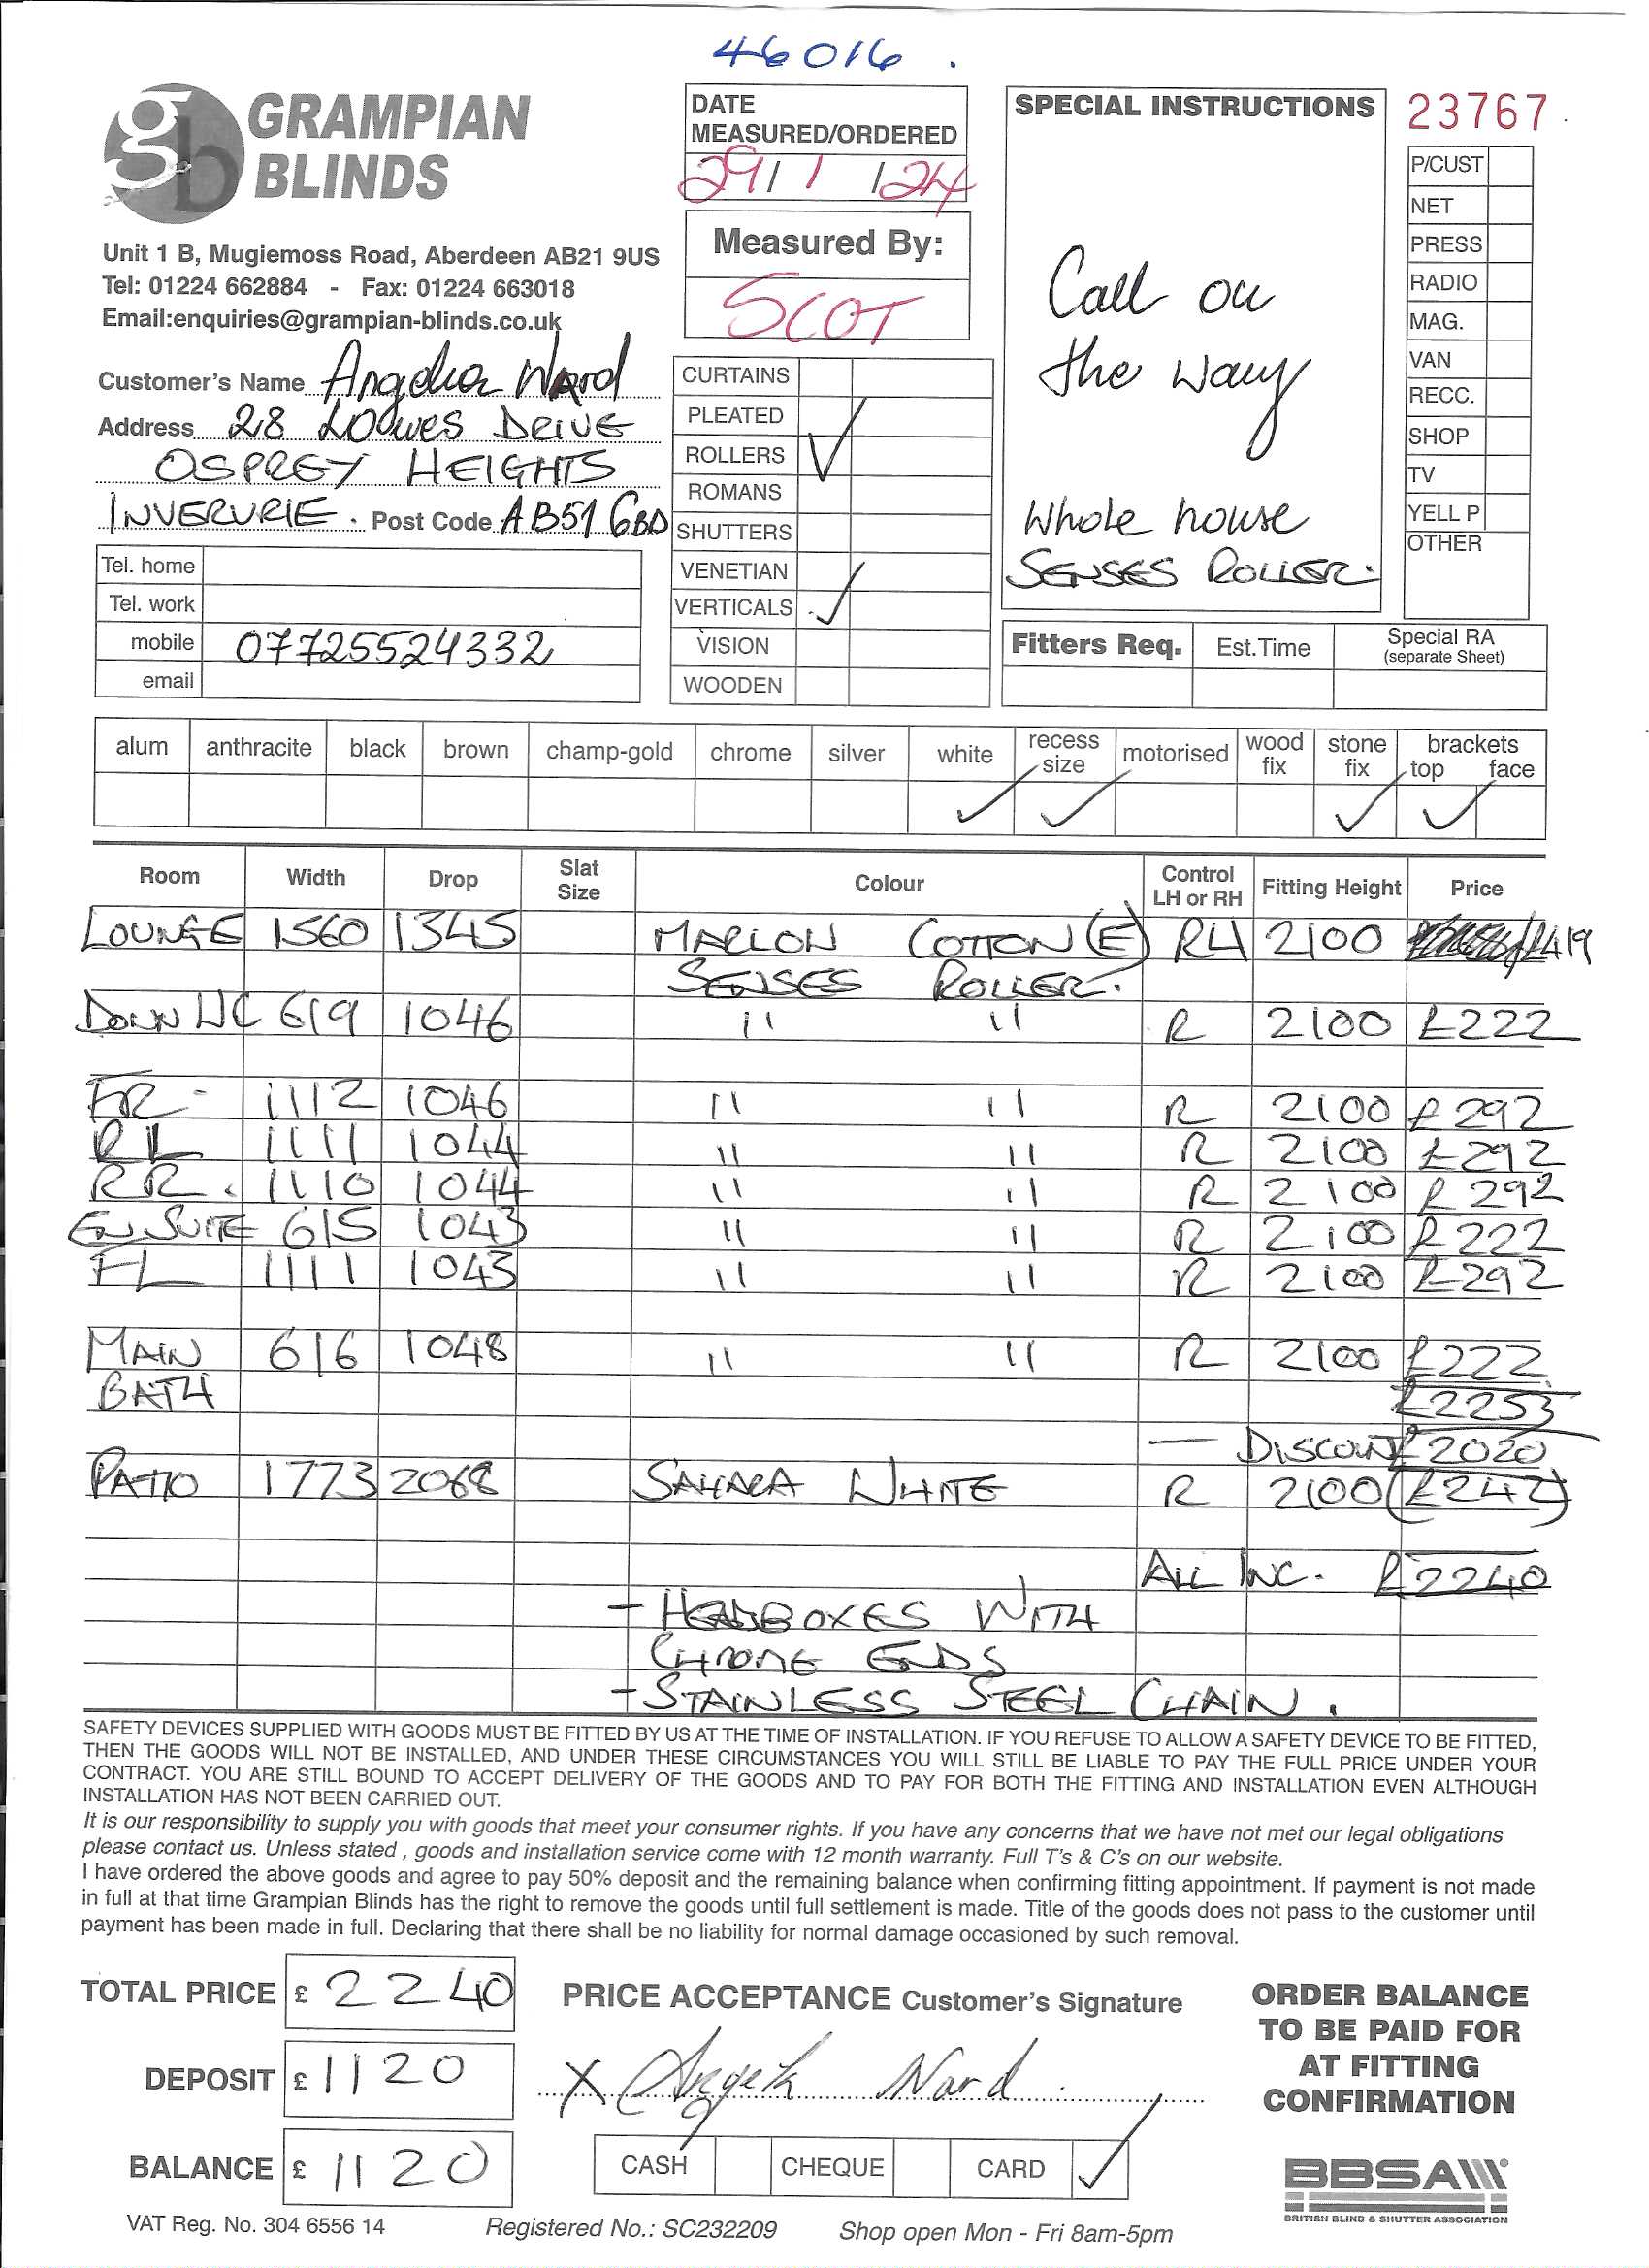 46016.
GRAMPIAN
BLINDS
Unit 1 B, Mugiemoss Road, Aberdeen AB21 9US
Tel: 01224 662884 - Fax: 01224 663018
Email:enquiries@grampian-blinds.co.uk
DATE
MEASURED/ORDERED
29/1/24
Measured By:
SCOT
SPECIAL INSTRUCTIONS
Call on
the way
Whole house
SENSES ROLLER.
23767
P/CUST
NET
PRESS
RADIO
MAG.
VAN
RECC.
SHOP
TV
YELL P
OTHER
Customer's Name Angelia Ward
Address 28 Lowes DRIVE
OSPREY HEIGHTS
INVERURIE. Post Code AB51 6BD
Tel. home
Tel. work
mobile 07725524332
email
CURTAINS
PLEATED
ROLLERS ✓
ROMANS
SHUTTERS
VENETIAN
VERTICALS ✓
VISION
WOODEN
Fitters Req. Est.Time Special RA
(separate Sheet)
alum anthracite black brown champ-gold chrome silver white recess size motorised wood fix stone fix brackets top face
✓ ✓ ✓ ✓
Room Width Drop Slat Size Colour Control LH or RH Fitting Height Price
LOUNGE 1560 1345 MARLON COTTON (E) RH 2100 £419
SENSES ROLLER.
DOWN WC 619 1046 " " R 2100 £222
FR - 1112 1046 " " R 2100 £292
RL 1111 1044 " " R 2100 £292
RR. 1110 1044 " " R 2100 £292
EN SUITE 615 1043 " " R 2100 £222
FL 1111 1043 " " R 2100 £292
MAIN 616 1048 " " R 2100 £222
BATH £2253
— DISCOUNT £2020
PATIO 1773 2068 SAHARA WHITE R 2100 (£242)
ALL INC. £2240
- HEADBOXES WITH
CHROME ENDS
- STAINLESS STEEL CHAIN.
SAFETY DEVICES SUPPLIED WITH GOODS MUST BE FITTED BY US AT THE TIME OF INSTALLATION. IF YOU REFUSE TO ALLOW A SAFETY DEVICE TO BE FITTED,
THEN THE GOODS WILL NOT BE INSTALLED, AND UNDER THESE CIRCUMSTANCES YOU WILL STILL BE LIABLE TO PAY THE FULL PRICE UNDER YOUR
CONTRACT. YOU ARE STILL BOUND TO ACCEPT DELIVERY OF THE GOODS AND TO PAY FOR BOTH THE FITTING AND INSTALLATION EVEN ALTHOUGH
INSTALLATION HAS NOT BEEN CARRIED OUT.
It is our responsibility to supply you with goods that meet your consumer rights. If you have any concerns that we have not met our legal obligations
please contact us. Unless stated , goods and installation service come with 12 month warranty. Full T's & C's on our website.
I have ordered the above goods and agree to pay 50% deposit and the remaining balance when confirming fitting appointment. If payment is not made
in full at that time Grampian Blinds has the right to remove the goods until full settlement is made. Title of the goods does not pass to the customer until
payment has been made in full. Declaring that there shall be no liability for normal damage occasioned by such removal.
TOTAL PRICE £ 2240
DEPOSIT £ 1120
BALANCE £ 1120
PRICE ACCEPTANCE Customer's Signature
X Angela Ward
CASH CHEQUE CARD ✓
ORDER BALANCE
TO BE PAID FOR
AT FITTING
CONFIRMATION
BBSA
BRITISH BLIND & SHUTTER ASSOCIATION
VAT Reg. No. 304 6556 14 Registered No.: SC232209 Shop open Mon - Fri 8am-5pm